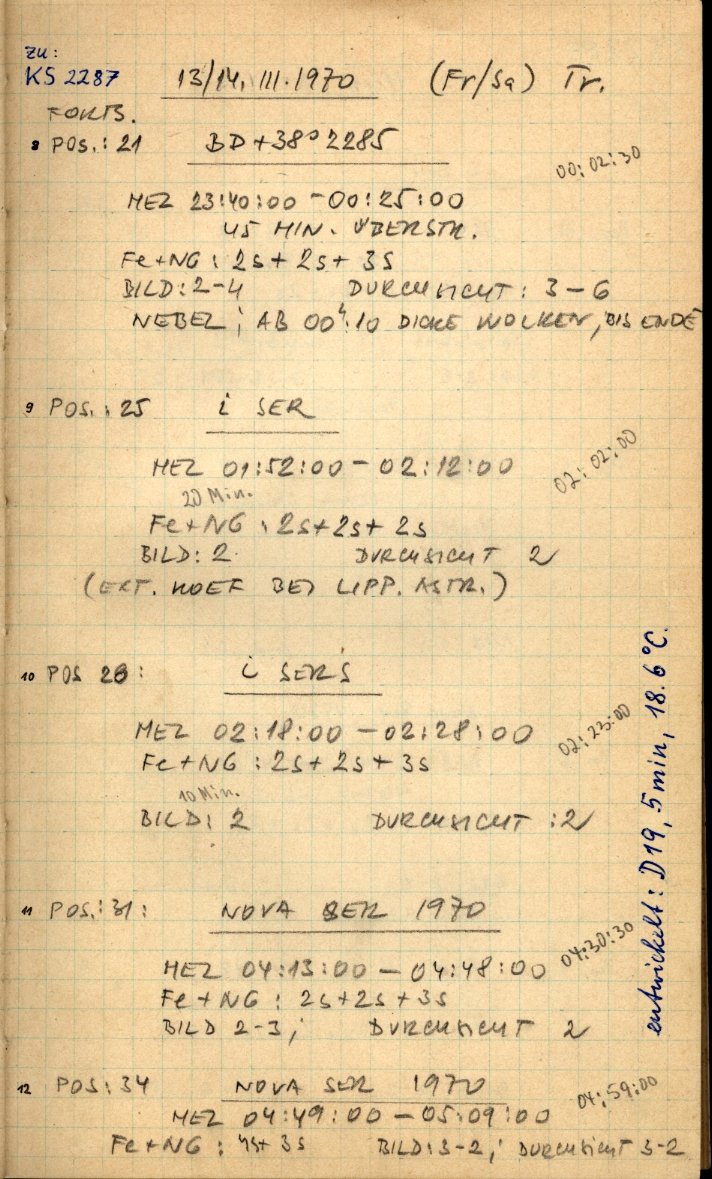 zu:
KS 2287 13/14. III. 1970 (Fr/Sa) Tr.
FORTS.
8 POS.: 21 BD +38° 2285
00:02:30
MEZ 23:40:00 - 00:25:00
45 MIN. ÜBERSTR.
Fe+NG: 2s + 2s + 3s
BILD: 2-4 DURCHSICHT: 3-6
NEBEL; AB 00h:10 DICKE WOLKEN, BIS ENDE
9 POS.: 25 i SER
MEZ 01:52:00 - 02:12:00 02:02:00
20 Min.
Fe+NG: 2s+2s+2s
BILD: 2 DURCHSICHT 2
BEI LIPP. ASTR.)
10 POS 26: i SER
MEZ 02:18:00 - 02:28:00 02:23:00
Fe+NG: 2s+2s+3s
10 Min.
BILD: 2 DURCHSICHT: 2
11 POS.: 31: NOVA SER 1970
MEZ 04:13:00 - 04:48:00 04:30:30
Fe+NG: 2s+2s+3s
BILD 2-3; DURCHSICHT 2
12 POS: 34 NOVA SER 1970
MEZ 04:49:00 - 05:09:00 04:59:00
Fe+NG: 4s+3s BILD: 3-2; DURCHSICHT 3-2
entwickelt: D19, 5min, 18.6°C.